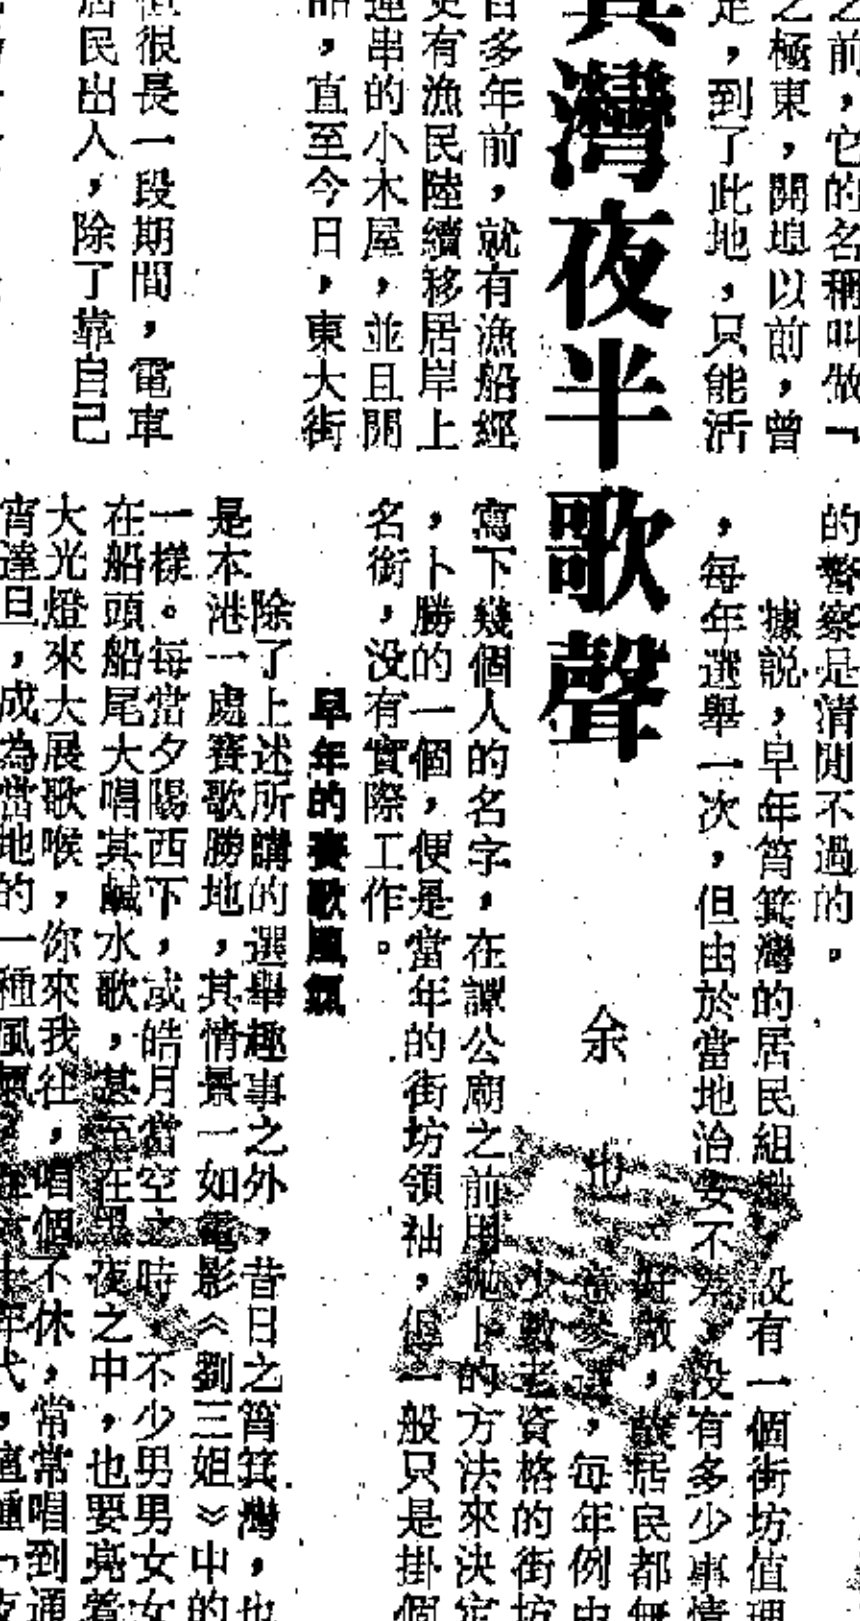 之前，它的名稱叫做「
之極東，開埠以前，曾
足，到了此地，只能活
箕灣夜半歌聲
余也
百多年前，就有漁船經
更有漁民陸續移居岸上
連串的小木屋，並且開
，直至今日，東大街
但很長一段期間，電車
居民出入，除了靠自己
的警察是清閒不過的。
據說，早年筲箕灣的居民組織，設有一個街坊值理
，每年選舉一次，但由於當地治安不差，沒有多少事情
好做，故居民都無
意參選，每年例由
少數老資格的街坊
寫下幾個人的名字，在譚公廟之前用拋卜的方法來決定
，卜勝的一個，便是當年的街坊領袖，但一般只是掛個
名銜，没有實際工作。
早年的賽歌風氣
除了上述所講的選舉趣事之外，昔日之筲箕灣，也
是本港一處賽歌勝地，其情景一如電影《劉三姐》中的
一樣。每當夕陽西下，或皓月當空之時，不少男男女女
在船頭船尾大唱其鹹水歌，甚至在黑夜之中，也要亮着
大光燈來大展歌喉，你來我往，唱個不休，常常唱到通
宵達旦，成為當地的一種風氣
年代，這種「夜